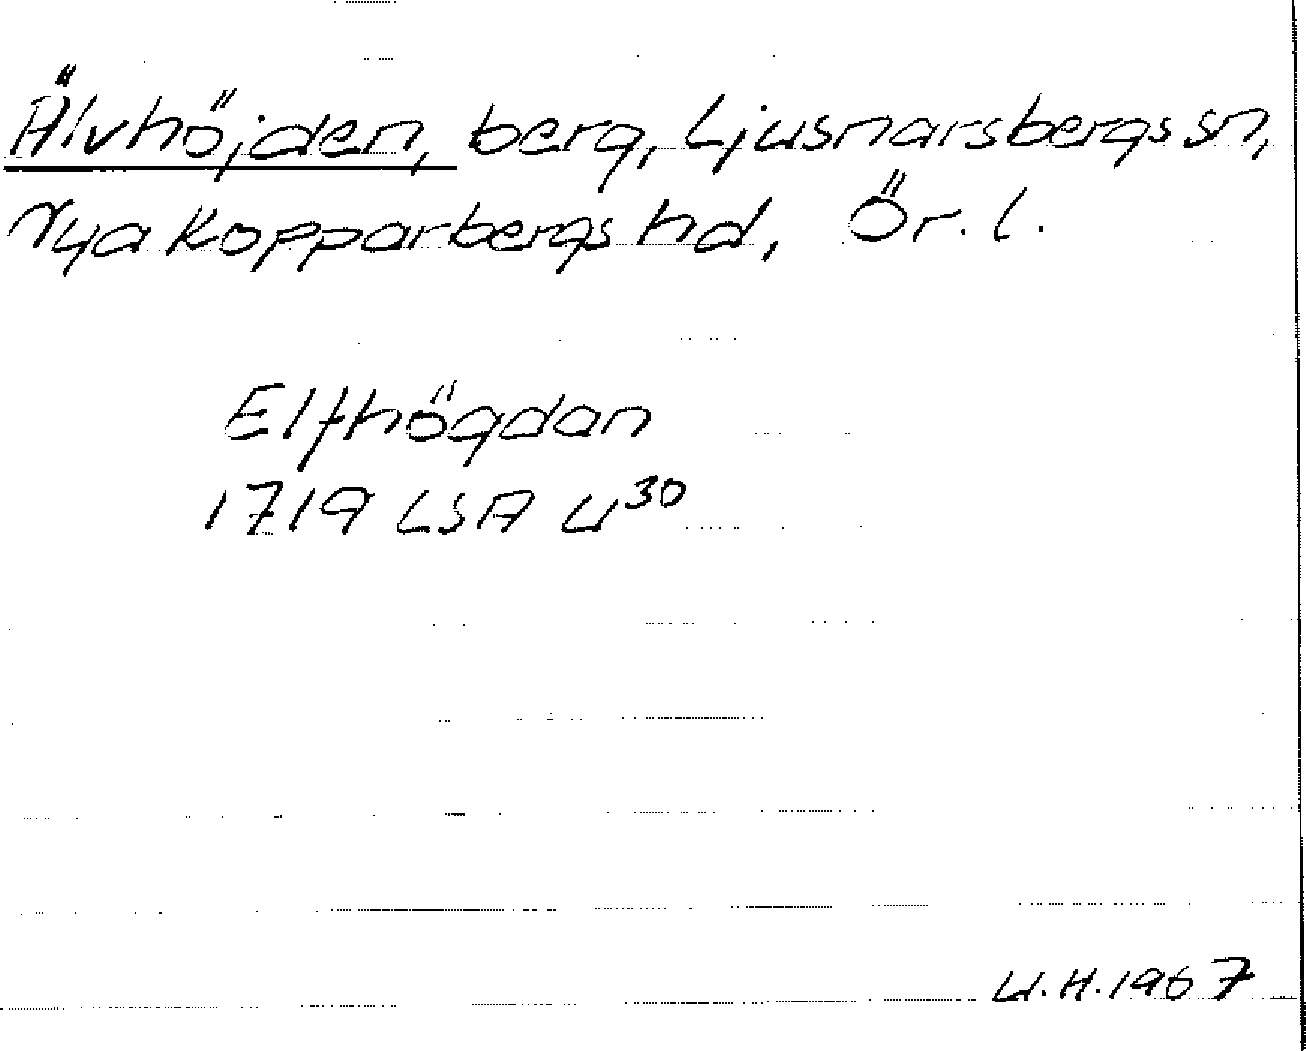 Älvhöjden, berg, Ljusnarsbergs sn,
Nya Kopparbergs hd, Ör. l.
Elfhögdan
1719 LSA U³⁰
U.H. 1967